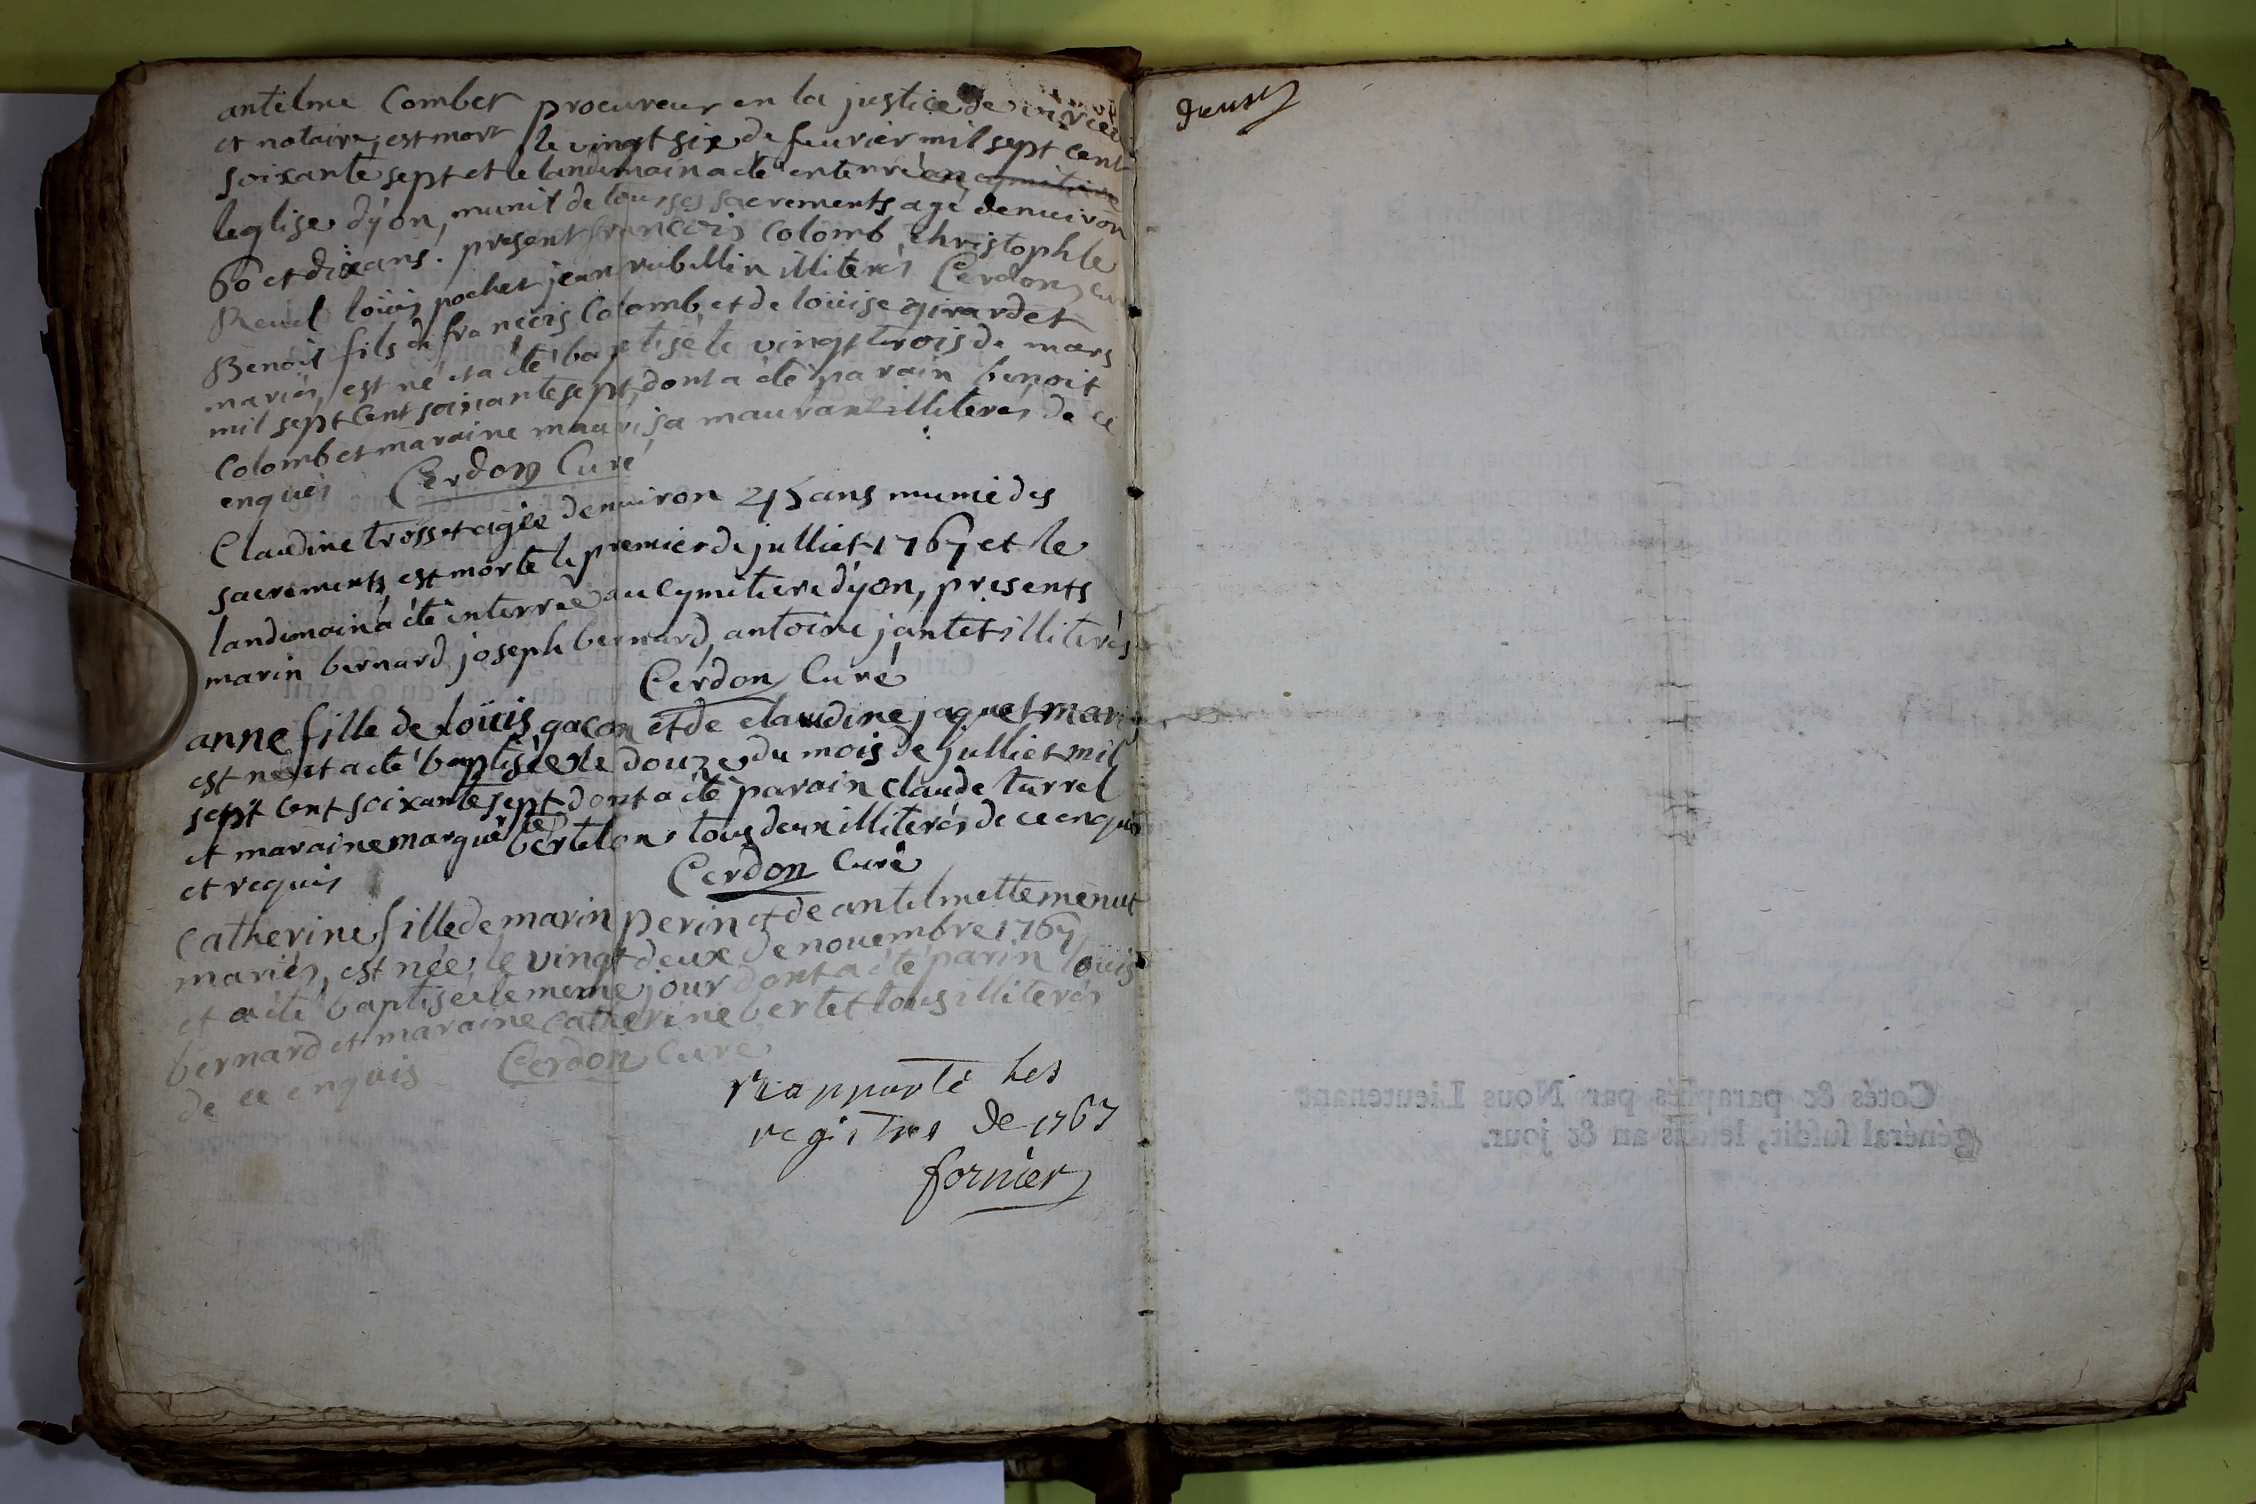 antelme Combet procureur en la justice de
et notaire, est mort le vingt six de feuvrier mil sept cent
soixante sept et le landemain a été enterré
leglise dÿon, munit de tous ses sacrements agé denuiron
60 et dix ans. present francois Colomb, christophle
Reuel loüis pochet jean rubellin illiterés Cerdon Cu
Benoit fils de francois Colomb, et de loüise girardet
mariés, est né et a été baptisé le vingt trois de mars
mil sept Cent soixante sept, dont a été parain benoit
Colomb et maraine illiterés de ce
enquis Cerdon Curé
Claudine trosset agée denuiron 45 ans munie des
sacrements, est morte le premier de julliet 1767 et le
landemain a été enterrée au Cymetiere dÿon, presents
marin bernard, joseph bernard, antoine jantet illiterés
Cerdon Curé
anne fille de Loüis gacon et de claudine jaquet mariés
est née et a été baptisée le douze du mois de julliet mil
sept Cent soixante sept dont a été parain Claude turrel
et maraine marguerite bertelon, tous deux illiterés de ce enquis
et requis
Cerdon Curé
Catherine fille de marin perin et de antelmette menut
mariés, est née, le vingt deux de nouembre 1767
et a été baptisée le meme jour dont a été parin loüis
bernard et maraine Catherine bertet tous illiterés
de ce enquis Cerdon Curé
Reapporté les
registres de 1767
fornier
Cotés & paraphés par Nous Lieutenant
général susdit, lesdits an & jour.